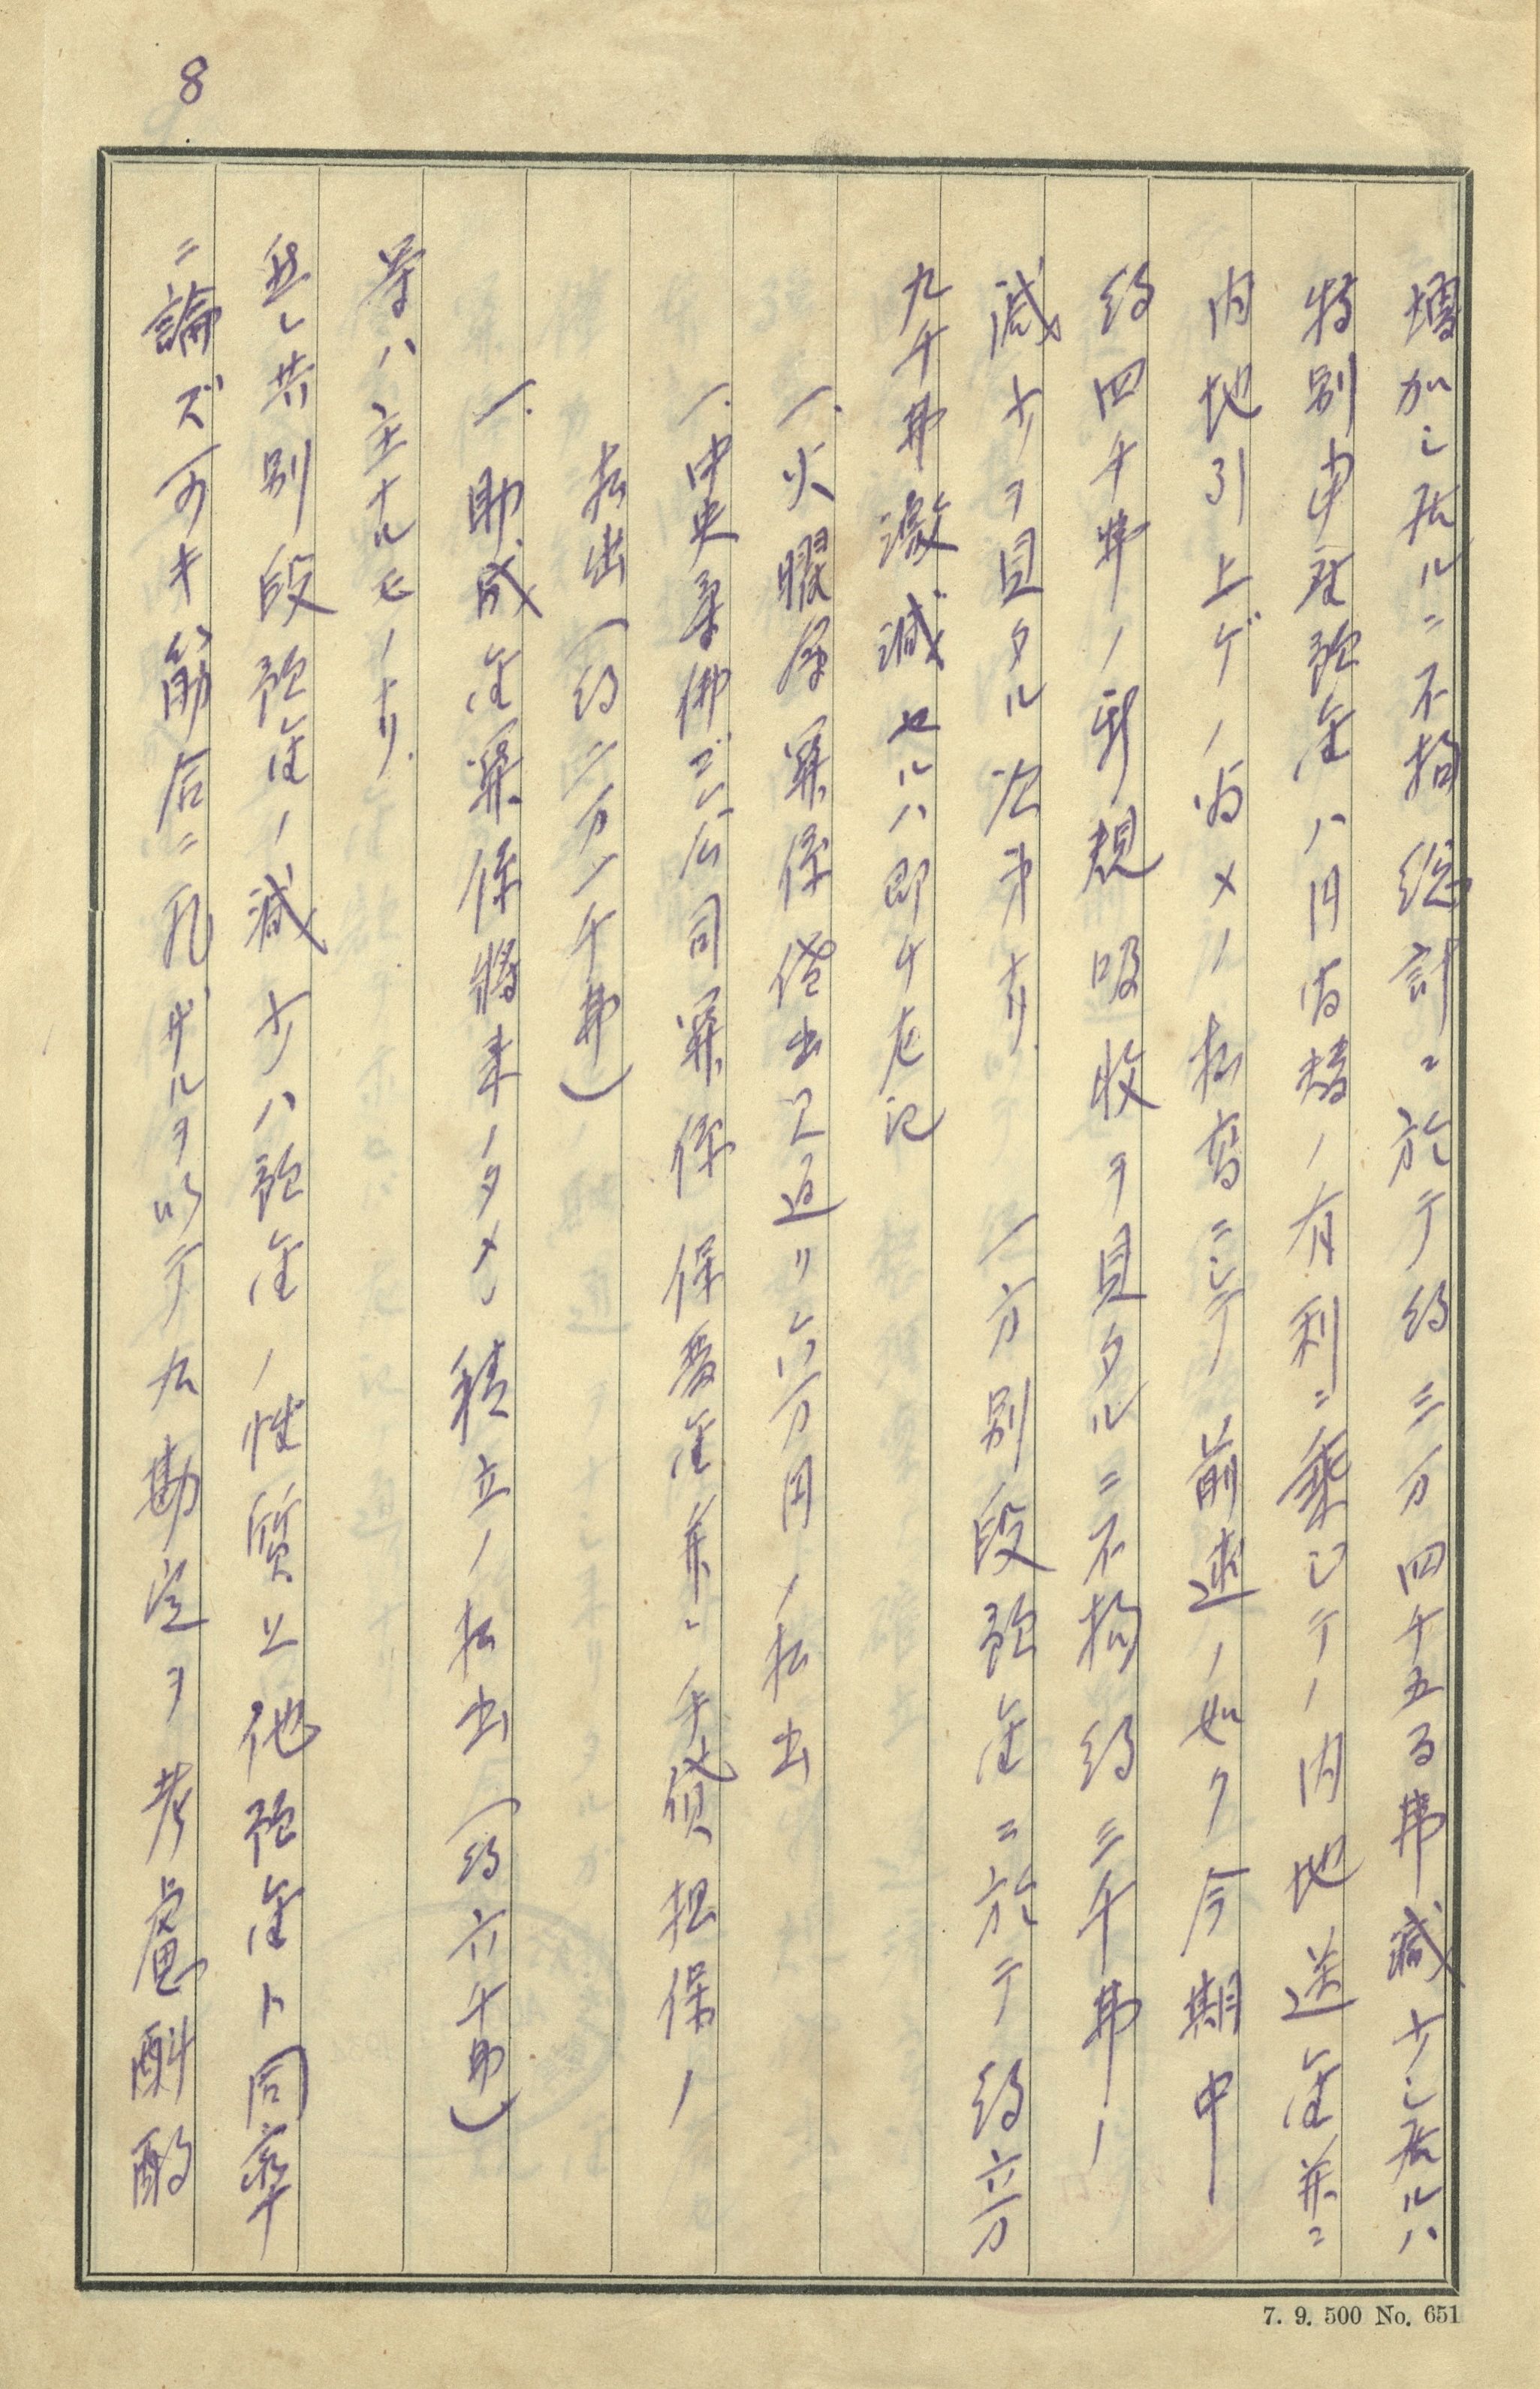 8
増加シ居ルニ不拘総計ニ於テ約三万四千五百弗減少シ居ルハ
特別当座預金ハ円為替ノ有利ニ乗ジテノ内地送金並ニ
内地引上ゲノ為メノ払出ニシテ前述ノ如ク今期中
約四千弗ノ新規吸收ヲ見タルニ不拘約三千弗ノ
減少ヲ見タル次第ナリ. 一方別段預金ニ於テ約六万
九千弗激減セルハ即チ左記
一. 火曜会関係貸出口返リ六万円ノ払出
一. 中央 公司関係保証金並ニ手貸担保ノ
払出(約二万一千弗)
一. 助成金関係将来ノタメノ積立ノ払出(約六千弗)
等ハ主ナルモノナリ.
然シ共別段預金ノ減少ハ預金ノ性質上他預金ト同率
ニ論ズ可キ筋合ニ非ザルヲ以テ 勘定ヲ考慮斟酌
7. 9. 500 No. 651